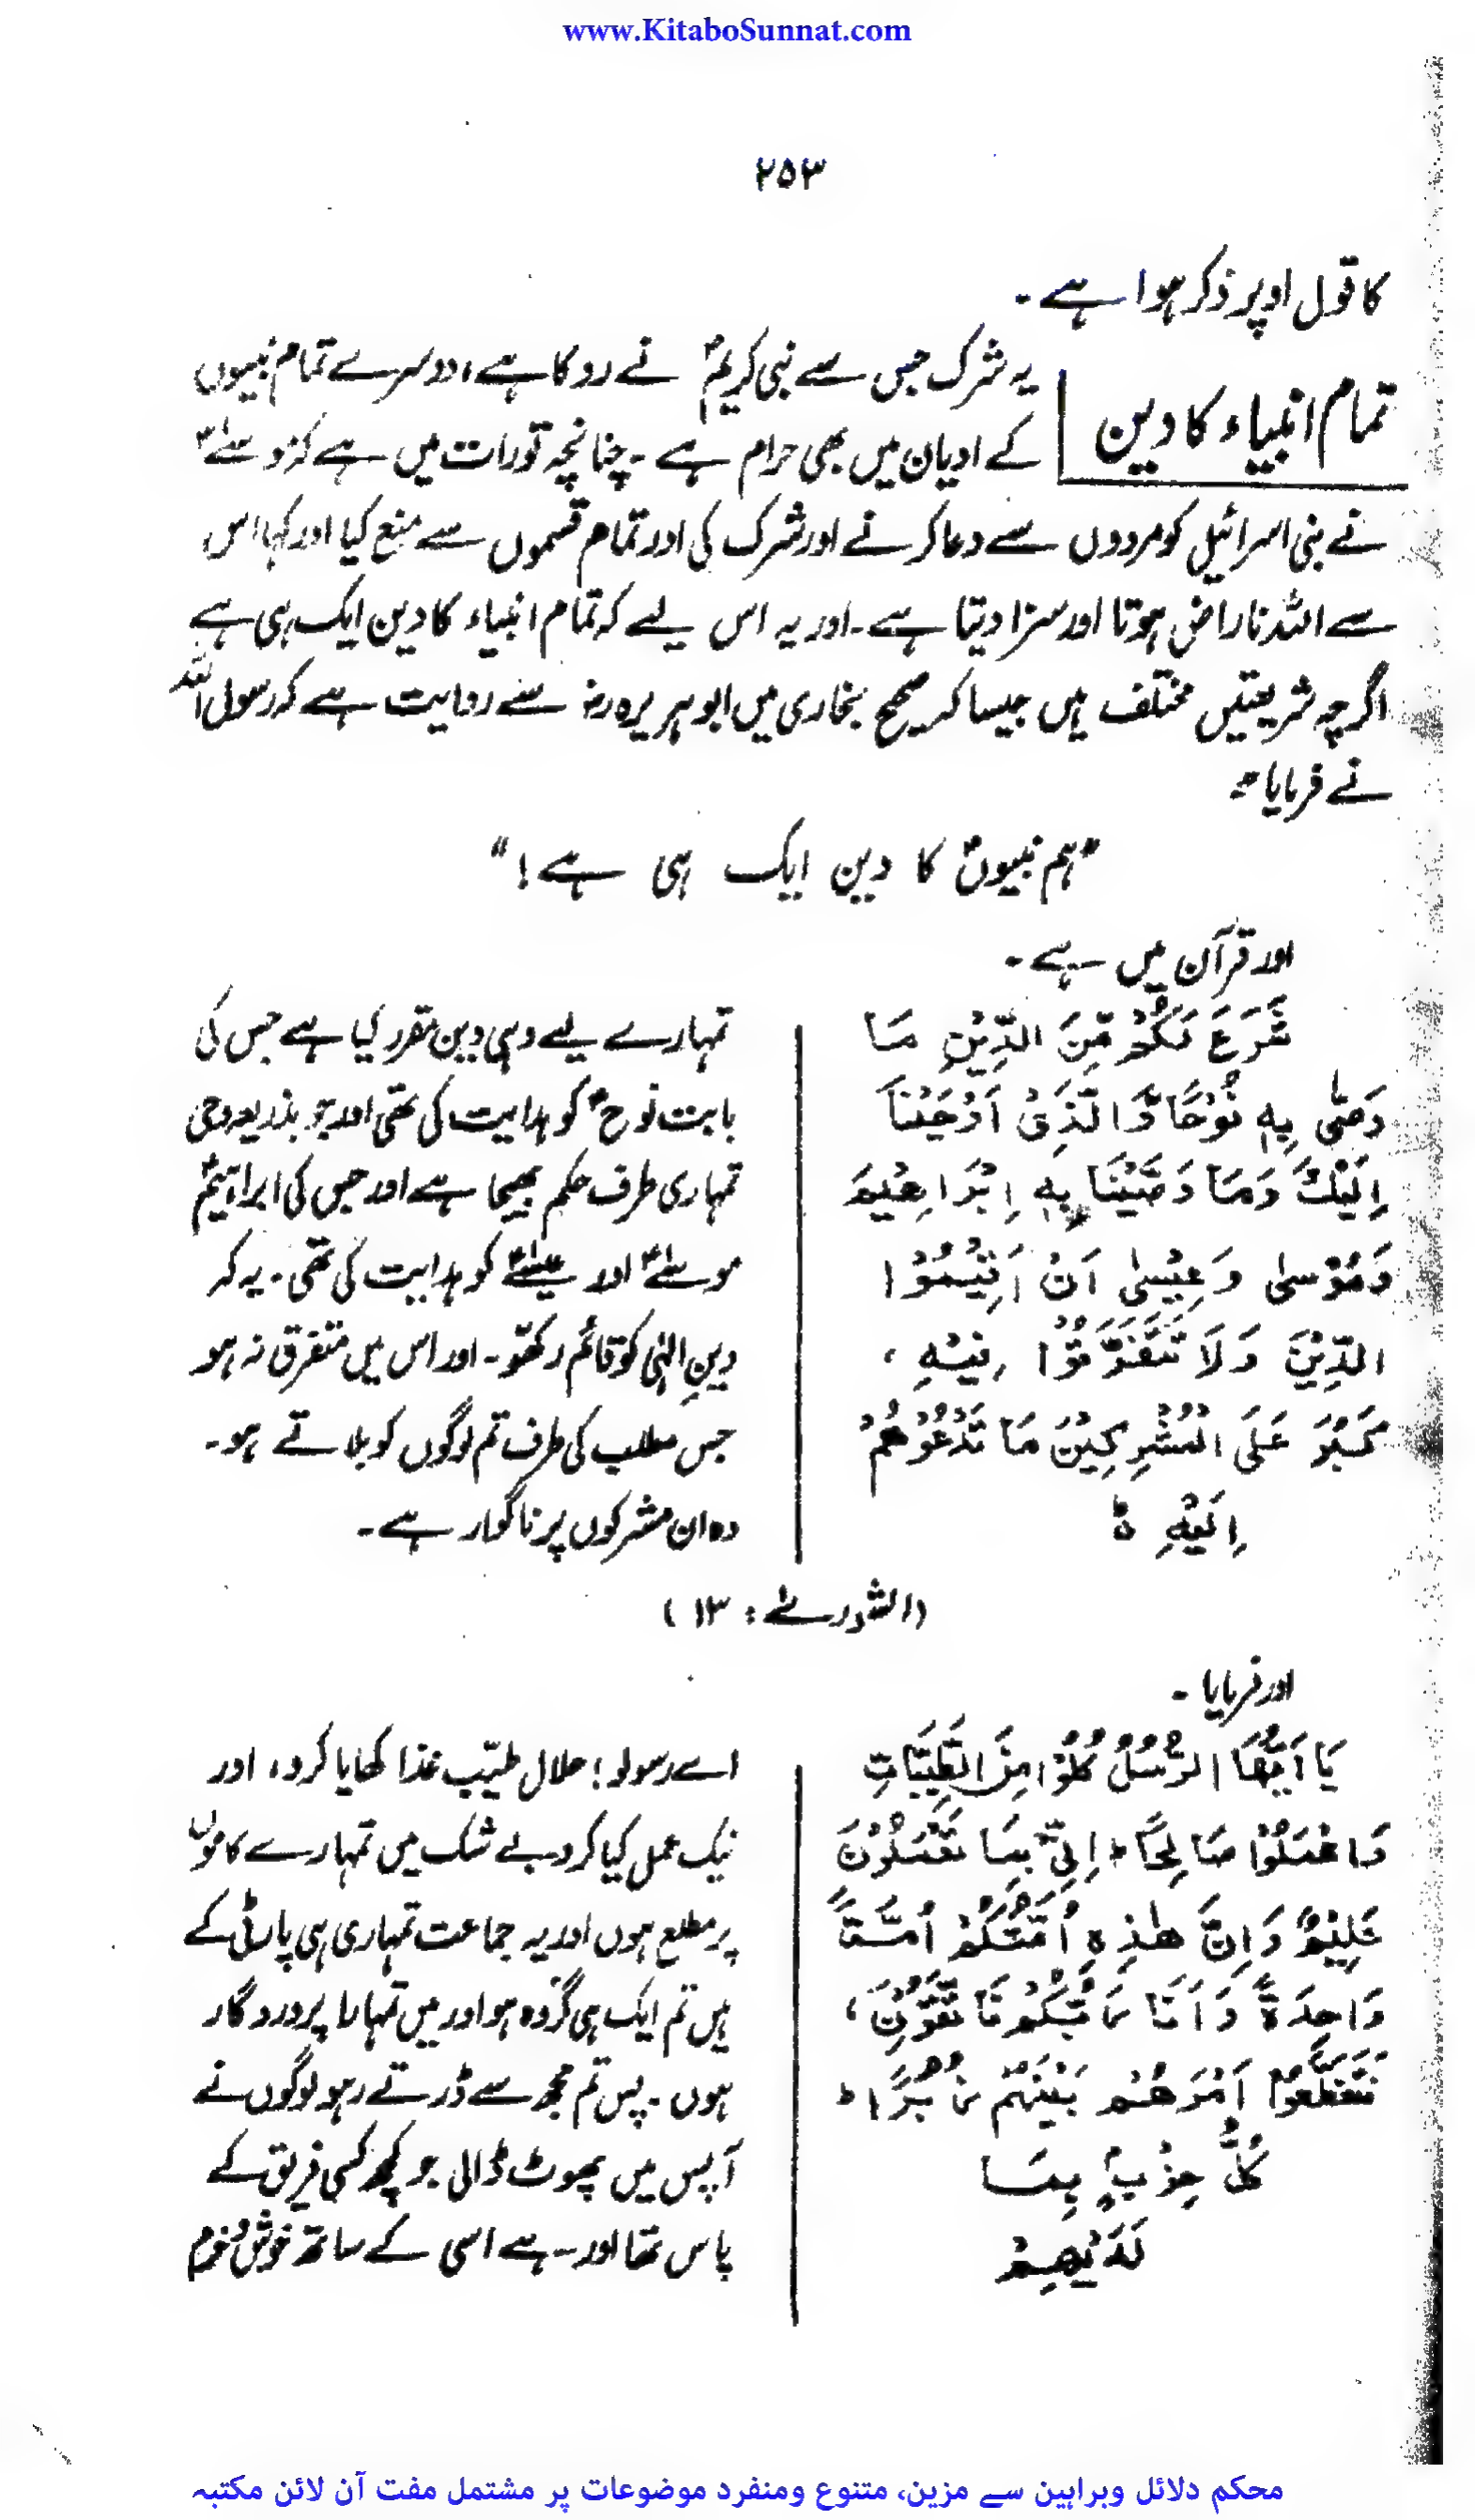 www.KitaboSunnat.com
۲۵۳
کا قول اوپر ذکر ہوا ہے۔
تمام انبیاء کا دین
یہ شرک جس سے نبی کریمؐ نے روکا ہے، دوسرے تمام نبیوں
کے ادیان میں بھی حرام ہے۔ چنانچہ تورات میں ہے کہ موسےٰؑ
نے بنی اسرائیل کو مردوں سے دعا کرنے اور شرک کی اور تمام قسموں سے منع کیا اور کہا اس
سے اللہ ناراض ہوتا اور سزا دیتا ہے۔ اور یہ اس لیے کہ تمام انبیاء کا دین ایک ہی ہے
اگرچہ شریعتیں مختلف ہیں جیسا کہ صحیح بخاری میں ابوہریرہ رضہ سے روایت ہے کہ رسول اللہ
نے فرمایا:۔
"ہم نبیوںؑ کا دین ایک ہی ہے!"
اور قرآن میں ہے۔
شَرَعَ لَكُمْ مِّنَ الدِّيْنِ مَا
وَصّٰى بِهٖ نُوْحًا وَّالَّذِىْ اَوْحَيْنَا
اِلَيْكَ وَمَا وَصَّيْنَا بِهٖ اِبْرَاهِيْمَ
وَمُوْسٰى وَعِيْسٰى اَنْ اَقِيْمُوْا
الدِّيْنَ وَلَا تَتَفَرَّقُوْا فِيْهِ ،
كَبُرَ عَلَى الْمُشْرِكِيْنَ مَا تَدْعُوْهُمْ
اِلَيْهِ ط
تمہارے لیے وہی دین مقرر کیا ہے جس کی
بابت نوحؑ کو ہدایت کی تھی اور جو بذریعہ وحی
تمہاری طرف حکم بھیجا ہے اور جس کی ابراہیمؑ
موسےٰؑ اور عیسےٰؑ کو ہدایت کی تھی۔ یہ کہ
دینِ الٰہی کو قائم رکھو۔ اور اس میں متفرق نہ ہو
جس مطلب کی طرف تم لوگوں کو بلاتے ہو۔
وہ ان مشرکوں پر ناگوار ہے۔
(الشوریٰ: ۱۳)
اور فرمایا۔
يَا اَيُّهَا الرُّسُلُ كُلُوْا مِنَ الطَّيِّبَاتِ
وَاعْمَلُوْا صَالِحًا ط اِنِّىْ بِمَا تَعْمَلُوْنَ
عَلِيْمٌ وَاِنَّ هٰذِهٖ اُمَّتُكُمْ اُمَّةً
وَاحِدَةً وَاَنَا رَبُّكُمْ فَاتَّقُوْنِ ،
فَتَقَطَّعُوْا اَمْرَهُمْ بَيْنَهُمْ زُبُرًا ط
كُلُّ حِزْبٍ بِمَا
لَدَيْهِمْ
اے رسولو! حلال طیّب غذا کھایا کرو، اور
نیک عمل کیا کرو بے شک میں تمہارے کاموں
پر مطلع ہوں اور یہ جماعت تمہاری ہی پارٹی کے
ہیں تم ایک ہی گروہ ہو اور میں تمہارا پروردگار
ہوں۔ پس تم مجھ سے ڈرتے رہو لوگوں نے
آپس میں پھوٹ ڈالی جو کچھ کسی فریق کے
پاس تھا اور ہے اسی کے ساتھ خوش و خرم
محکم دلائل وبراہین سے مزین، متنوع ومنفرد موضوعات پر مشتمل مفت آن لائن مکتبہ